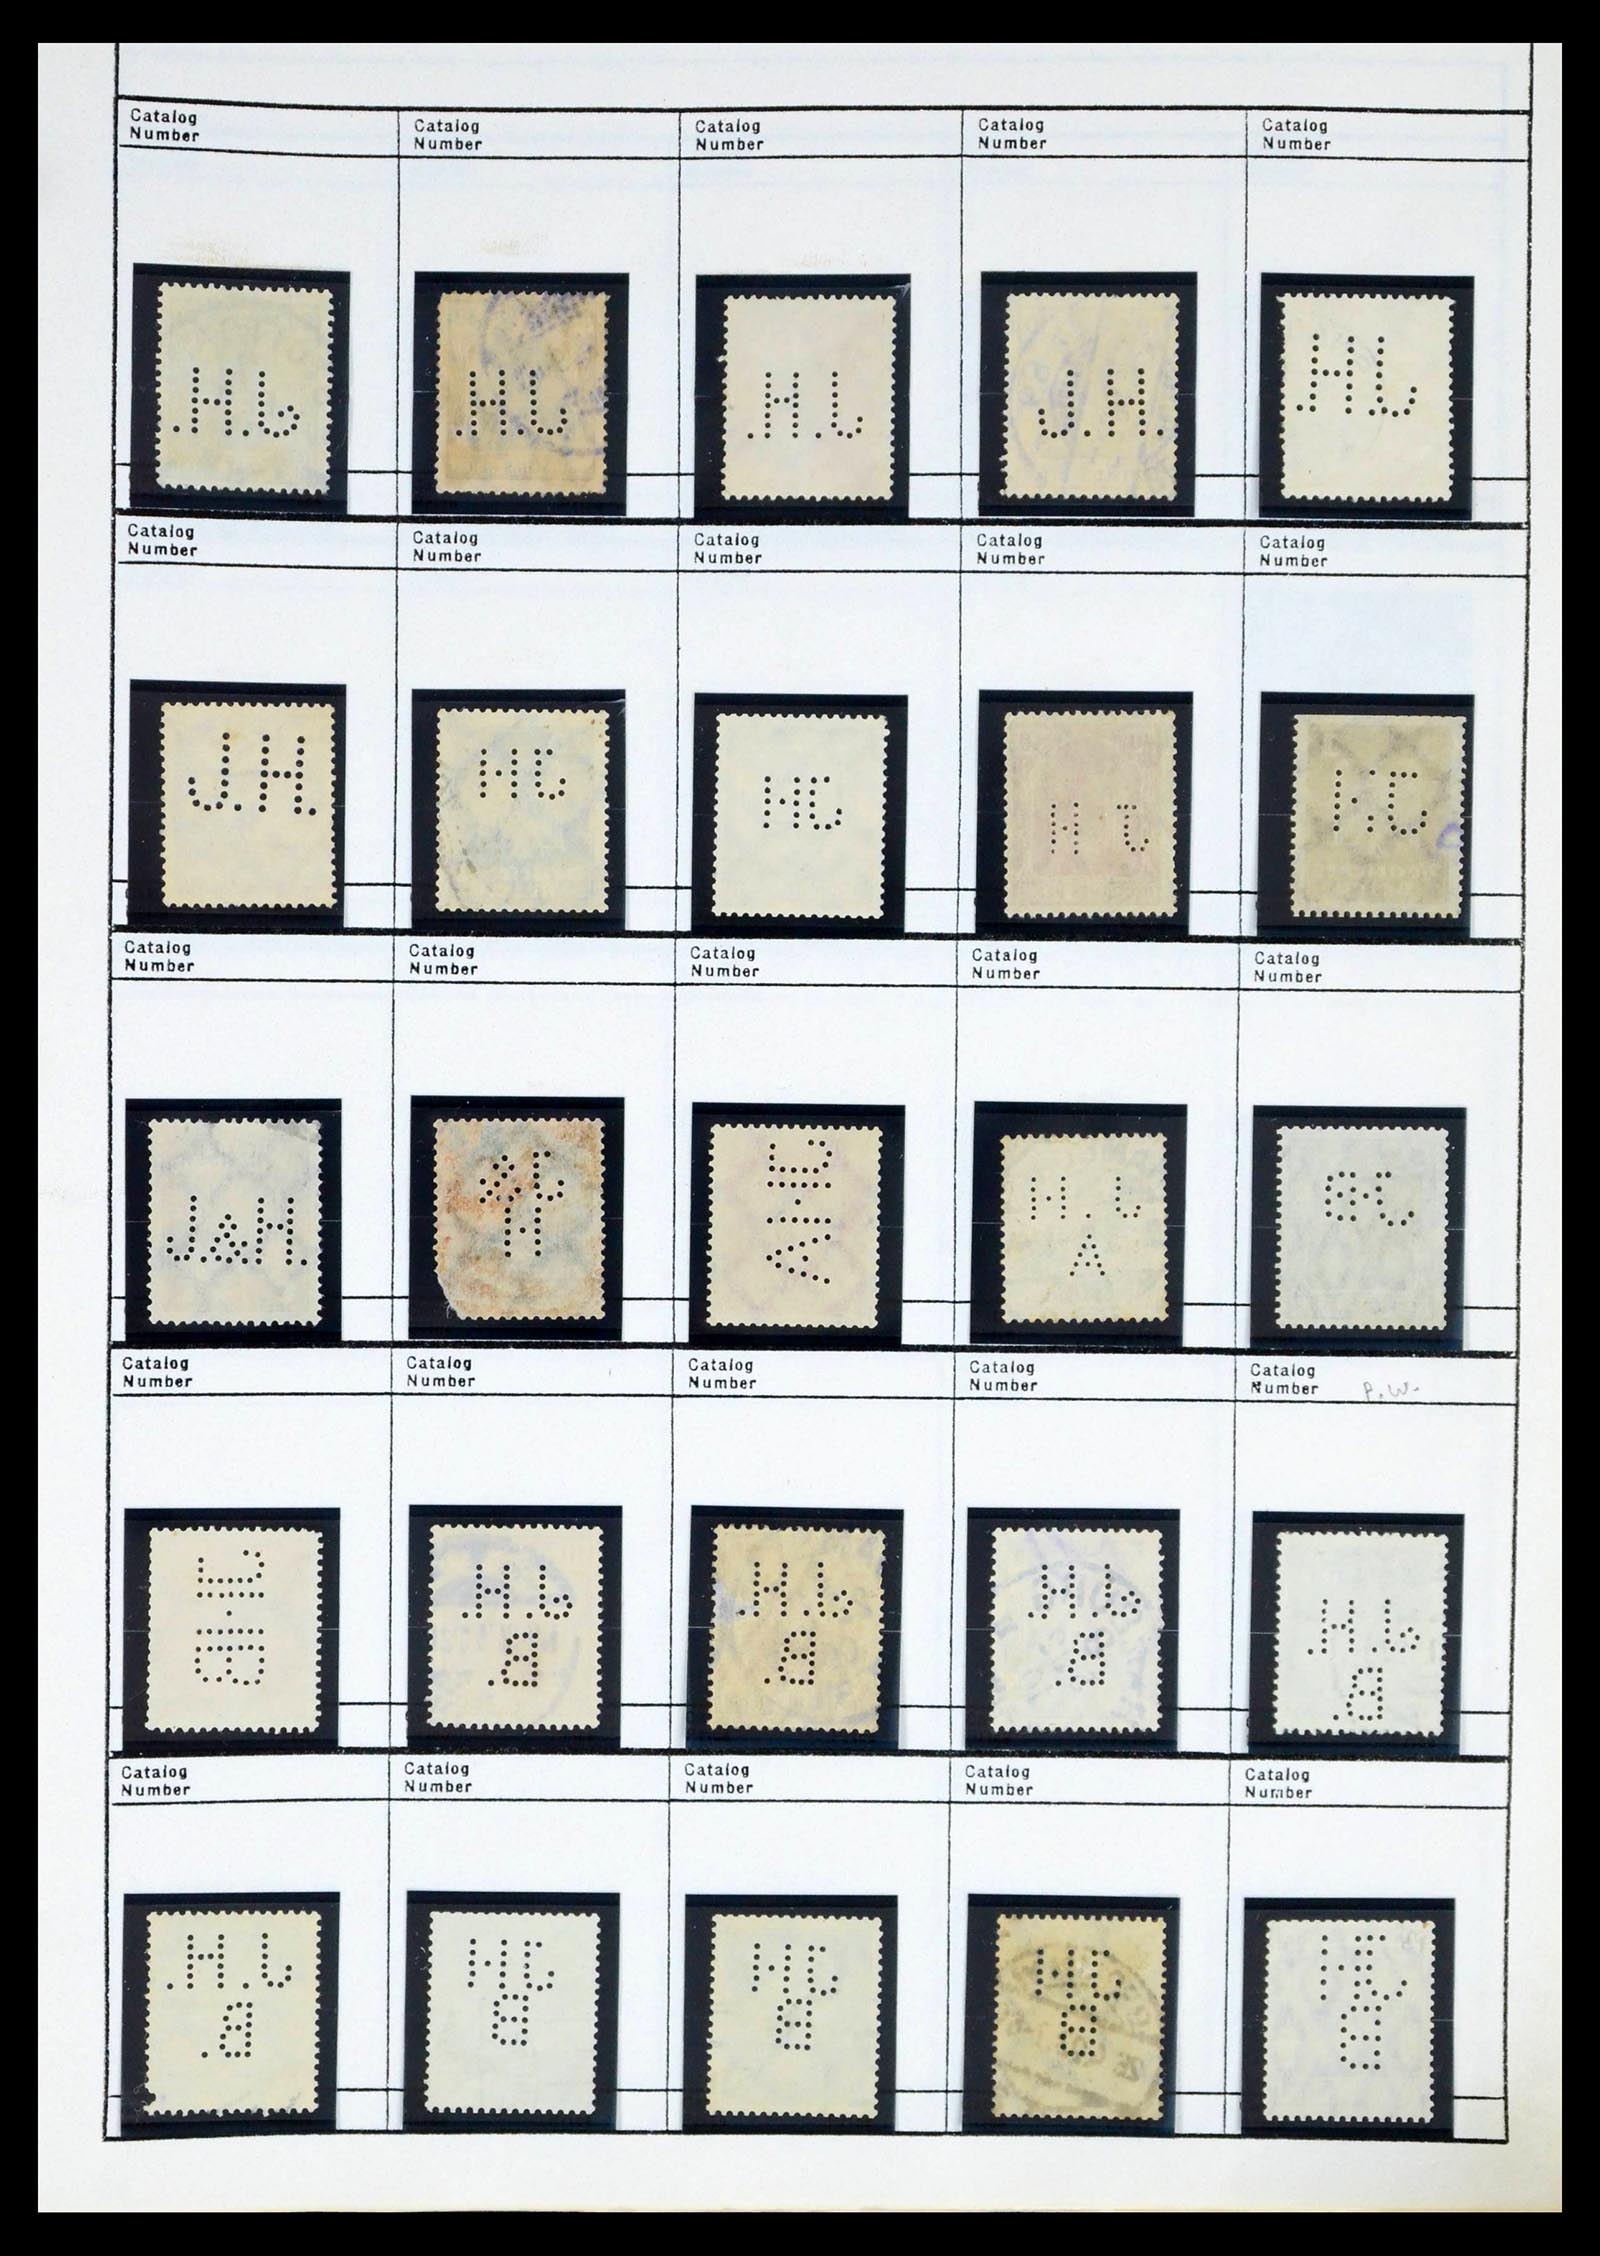 Catalog Number Catalog Number Catalog Number Catalog Number Catalog Number
.H.J .H.J .H.J J.H. .H.J
Catalog Number Catalog Number Catalog Number Catalog Number Catalog Number
J.H. HJ HJ H J HJ
Catalog Number Catalog Number Catalog Number Catalog Number Catalog Number
J&H. &J JHA H.J BJ
H A
Catalog Number Catalog Number Catalog Number Catalog Number Catalog Number P.W.
JHB .H.J .H.J .H.J .H.J
.B .B .B .B
Catalog Number Catalog Number Catalog Number Catalog Number Catalog Number
.H.J HJ HJ HJ HJ
.B B B B B